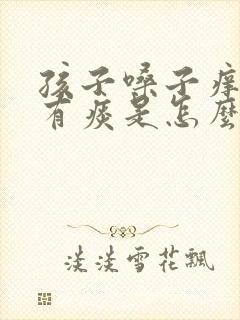 孩子嗓子痒
有痰是怎麽
淡淡雪花飄